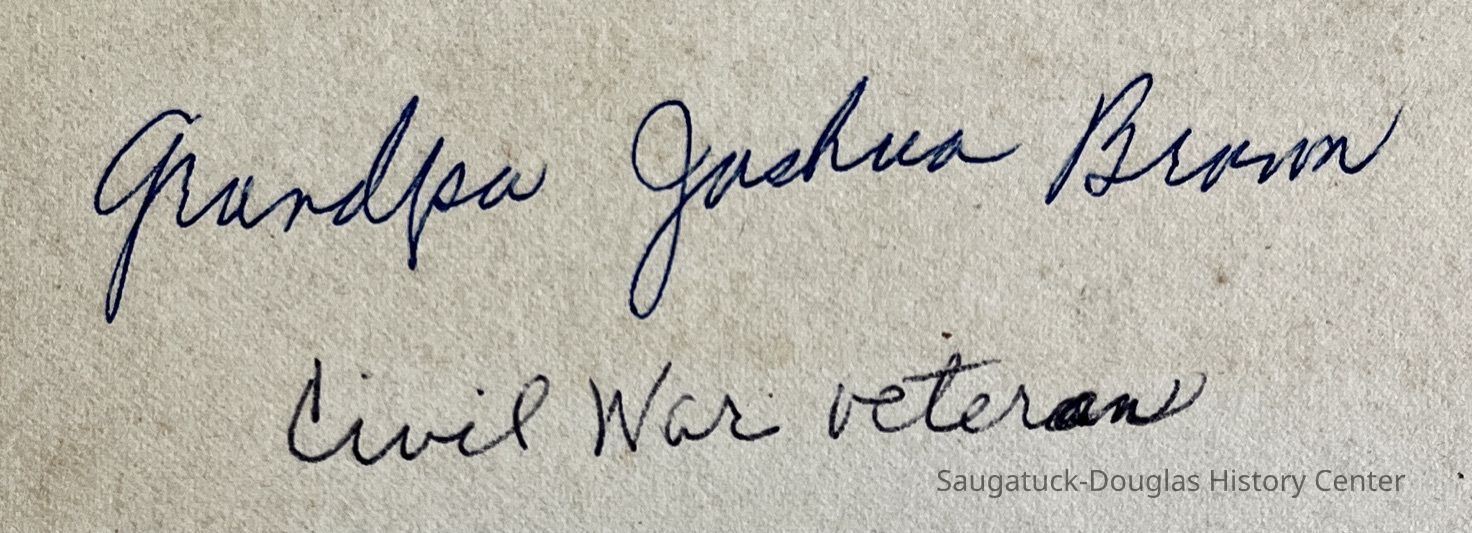 Grandpa Joshua Brown
Civil War veteran
Saugatuck-Douglas History Center